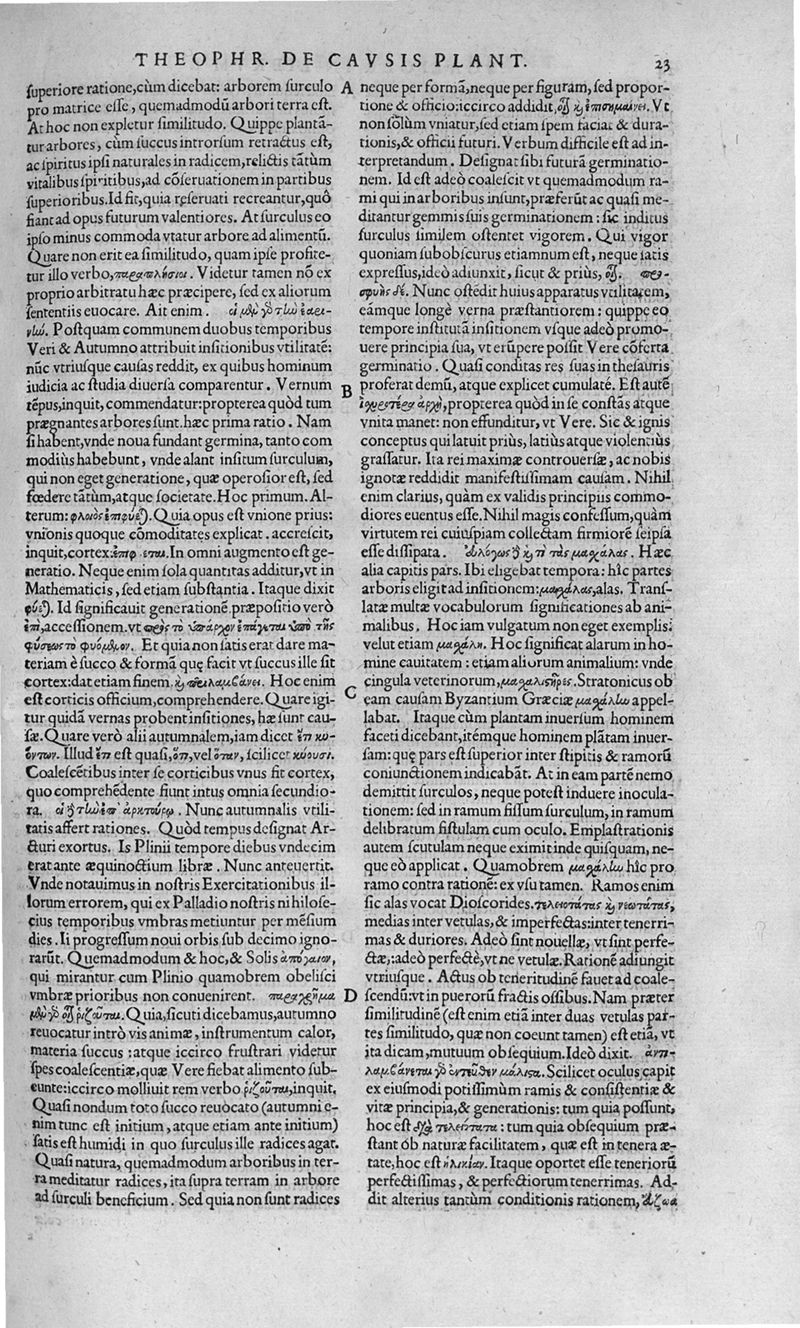 THEOPHR. DE CAVSIS PLANT.
23
ſuperiore ratione, cùm dicebat: arborem ſurculo
pro matrice eſſe, quemadmodũ arbori terra eſt.
At hoc non expletur ſimilitudo. Quippe plantã-
tur arbores, cùm ſuccus introrſum retractus eſt,
ac ſpiritus ipſi naturales in radicem, relictis tãtùm
vitalibus ſpiritibus, ad cõſeruationem in partibus
ſuperioribus. Id fit, quia reſeruati recreantur, quô
fiant ad opus futurum valentiores. At ſurculus eo
ipſo minus commoda vtatur arbore ad alimentũ.
Quare non erit ea ſimilitudo, quam ipſe profite-
tur illo verbo, παραπλήσιαι. Videtur tamen nõ ex
proprio arbitratu hæc præcipere, ſed ex aliorum
ſententiis euocare. Ait enim. αἱ μὲν γὸ τὴν ἐαρι-
νὴν. Poſtquam communem duobus temporibus
Veri & Autumno attribuit inſitionibus vtilitatẽ:
nũc vtriuſque cauſas reddit, ex quibus hominum
iudicia ac ſtudia diuerſa comparentur. Vernum
tẽpus, inquit, commendatur: propterea quòd tum
prægnantes arbores ſunt. hæc prima ratio. Nam
ſi habent, vnde noua fundant germina, tanto com
modiùs habebunt, vnde alant inſitum ſurculum,
qui non eget generatione, quæ operoſior eſt, ſed
fœdere tãtùm, atque ſocietate. Hoc primum. Al-
terum: φλοιὸς ἐπιφύε). Quia opus eſt vnione prius:
vnionis quoque cõmoditates explicat. accreſcit,
inquit, cortex: In omni augmento eſt ge-
neratio. Neque enim ſola quantitas additur, vt in
Mathematicis, ſed etiam ſubſtantia. Itaque dixit
φύε). Id ſignificauit generationẽ. præpoſitio verò
ἐπὶ, acceſſionem. vt πρὸς τὸ ὑπάρχον ἐπάγεται ὑπὸ τῆς
φύσεως τὸ φυόμενον. Et quia non ſatis erat dare ma-
teriam è ſucco & formã quę facit vt ſuccus ille ſit
cortex: dat etiam finem, ϗ περιλαμβάνει. Hoc enim
eſt corticis officium, comprehendere. Quare igi-
tur quidã vernas probent inſitiones, hæ ſunt cau-
ſæ. Quare verò alii autumnalem, iam dicet ἔτι κυ-
όντων. Illud ἔτι eſt quaſi, ὅτι, vel ὅταν, ſcilicet κύουσι.
Coaleſcẽtibus inter ſe corticibus vnus fit cortex,
quo comprehẽdente fiunt intus omnia ſecundio-
ra. αἱ ἢ τὴν ἐπ' ἀρκτούρῳ. Nunc autumnalis vtili-
tatis affert rationes. Quòd tempus deſignat Ar-
cturi exortus. Is Plinii tempore diebus vndecim
erat ante æquinoctium libræ. Nunc anteuertit.
Vnde notauimus in noſtris Exercitationibus il-
lorum errorem, qui ex Palladio noſtris nihiloſe-
cius temporibus vmbras metiuntur per mẽſium
dies. Ii progreſſum noui orbis ſub decimo igno-
rarũt. Quemadmodum & hoc, & Solis ἀπόγαιον,
qui mirantur cum Plinio quamobrem obeliſci
vmbræ prioribus non conuenirent. παραχρῆμα
μὲν γὸ οὖν ῥιζοῦται. Quia, ſicuti dicebamus, autumno
reuocatur intrò vis animæ, inſtrumentum calor,
materia ſuccus: atque iccirco fruſtrari videtur
ſpes coaleſcentiæ, quæ Vere fiebat alimento ſub-
eunte: iccirco molliuit rem verbo ῥιζοῦται, inquit.
Quaſi nondum toto ſucco reuocato (autumni e-
nim tunc eſt initium, atque etiam ante initium)
ſatis eſt humidi in quo ſurculus ille radices agat.
Quaſi natura, quemadmodum arboribus in ter-
ra meditatur radices, ita ſupra terram in arbore
ad ſurculi beneficium. Sed quia non ſunt radices
A
B
C
D
neque per formã, neque per figuram, ſed propor-
tione & officio: iccirco addidit, οἷ ϗ ἐπισημαίνει. Vt
non ſolùm vniatur, ſed etiam ſpem faciat & dura-
tionis, & officii futuri. Verbum difficile eſt ad in-
terpretandum. Deſignat ſibi futurã germinatio-
nem. Id eſt adeò coaleſcit vt quemadmodum ra-
mi qui in arboribus inſunt, præferũt ac quaſi me-
ditantur gemmis ſuis germinationem: ſic inditus
ſurculus ſimilem oſtentet vigorem. Qui vigor
quoniam ſubobſcurus etiamnum eſt, neque ſatis
expreſſus, ideò adiunxit, ſicut & prius, οἷ.
Nunc oſtẽdit huius apparatus vtilitatem,
eámque longè verna præſtantiorem: quippe eo
tempore inſtitutã inſitionem vſque adeò promo-
uere principia ſua, vt erũpere poſſit Vere cõferta
germinatio. Quaſi conditas res ſuas in theſauris
proferat demũ, atque explicet cumulatè. Eſt autẽ
ἰσχυροτέρα ἀρχὴ, propterea quòd in ſe conſtãs atque
vnita manet: non effunditur, vt Vere. Sic & ignis
conceptus qui latuit prius, latiùs atque violentiùs
graſſatur. Ita rei maximæ controuerſæ, ac nobis
ignotæ reddidit manifeſtiſſimam cauſam. Nihil
enim clarius, quàm ex validis principiis commo-
diores euentus eſſe. Nihil magis confeſſum, quàm
virtutem rei cuiuſpiam collectam firmiorẽ ſeipſa
eſſe diſſipata. εὐλόγως ἢ ϗ τὶ τὰς μασχάλας. Hæc
alia capitis pars. Ibi eligebat tempora: hîc partes
arboris eligit ad inſitionem: μασχάλας, alas. Tranſ-
latæ multæ vocabulorum ſignificationes ab ani-
malibus. Hoc iam vulgatum non eget exemplis:
velut etiam μασχάλη. Hoc ſignificat alarum in ho-
mine cauitatem: etiam aliorum animalium: vnde
cingula veterinorum, μασχαλιστῆρες. Stratonicus ob
eam cauſam Byzantium Græciæ μασχάλην appel-
labat. Itaque cùm plantam inuerſum hominem
faceti dicebant, itémque hominem plãtam inuer-
ſam: quę pars eſt ſuperior inter ſtipitis & ramorũ
coniunctionem indicabãt. At in eam partẽ nemo
demittit ſurculos, neque poteſt induere inocula-
tionem: ſed in ramum fiſſum ſurculum, in ramum
delibratum fiſtulam cum oculo. Emplaſtrationis
autem ſcutulam neque eximit inde quiſquam, ne-
que eò applicat. Quamobrem μασχάλην hîc pro
ramo contra rationẽ: ex vſu tamen. Ramos enim
ſic alas vocat Dioſcorides. τελειοτάτας ϗ νεωτάτας,
medias inter vetulas, & imperfectas: inter tenerri-
mas & duriores. Adeò ſint nouellæ, vt ſint perfe-
ctæ,: adeò perfectè, vt ne vetulæ. Rationẽ adiungit
vtriuſque. Actus ob teneritudinẽ fauet ad coale-
ſcendũ: vt in puerorũ fractis oſſibus. Nam præter
ſimilitudinẽ (eſt enim etiã inter duas vetulas par-
tes ſimilitudo, quæ non coeunt tamen) eſt etiã, vt
ita dicam, mutuum obſequium. Ideò dixit. ἀντι-
λαμβάνεται γὸ ἐντεῦθεν μάλιστα. Scilicet oculus capit
ex eiuſmodi potiſſimùm ramis & conſiſtentiæ &
vitæ principia, & generationis: tum quia poſſunt,
hoc eſt τελειότατα: tum quia obſequium præ-
ſtant ob naturæ facilitatem, quæ eſt in tenera æ-
tate, hoc eſt ἡλικίαν. Itaque oportet eſſe teneriorũ
perfectiſſimas, & perfectiorum tenerrimas. Ad-
dit alterius tantùm conditionis rationem,